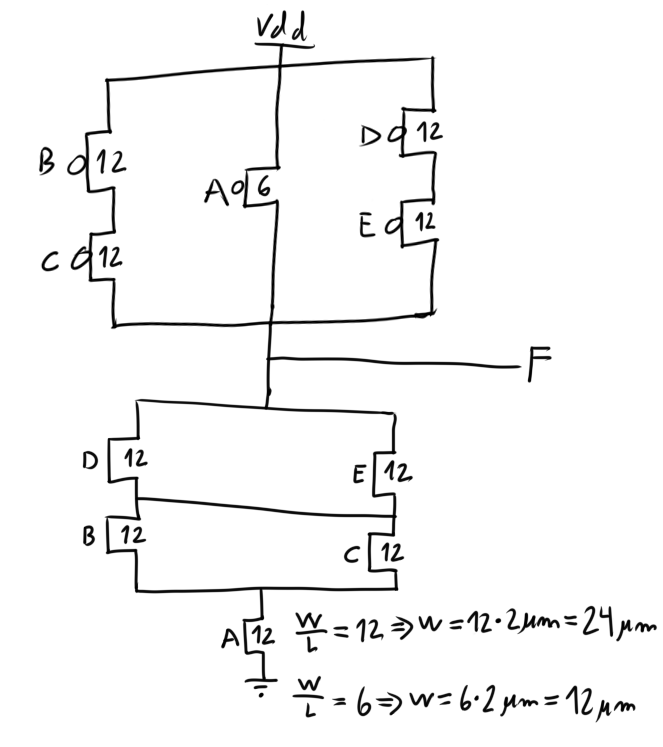 Vdd
B 12
D 12
A 6
E 12
C 12
F
D 12
E 12
B 12
C 12
A 12 W/L = 12 ⇒ W = 12·2μm = 24μm
W/L = 6 ⇒ W = 6·2μm = 12μm